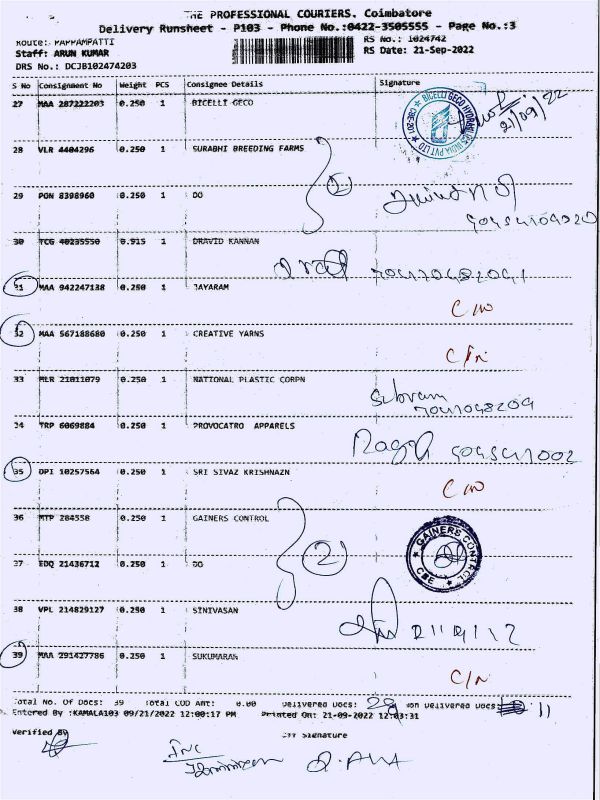 THE PROFESSIONAL COURIERS. Coimbatore
Delivery Runsheet - P103 - Phone No.:0422-3505555 - Page No.:3
Route: PAPPAMPATTI RS No.: 1024742
Staff: ARUN KUMAR RS Date: 21-Sep-2022
DRS No.: DCJB102474203
S No Consignment No Weight PCS Consignee Details Signature
27 MAA 287222203 0.250 1 BICELLI GECO
BICELLI GECO HYDRAULICS INDIA PVT LTD
21/09/22
28 VLR 4404296 0.250 1 SURABHI BREEDING FARMS
2
29 PON 8398960 0.250 1 DO
30 TCG 40235550 0.915 1 DRAVID KANNAN
31 MAA 942247138 0.250 1 JAYARAM
32 MAA 567188680 0.250 1 CREATIVE YARNS
33 MLR 21011079 0.250 1 NATIONAL PLASTIC CORPN
34 TRP 6069884 0.250 1 PROVOCATRO APPARELS
35 DPI 10257564 0.250 1 SRI SIVAZ KRISHNAZN
36 MTP 284558 0.250 1 GAINERS CONTROL
2
37 EDQ 21436712 0.250 1 DO
38 VPL 214829127 0.250 1 SINIVASAN
39 MAA 291427786 0.250 1 SUKUMARAN
C/N
Total No. Of Docs: 39 Total COD Amt: 0.00 Delivered Docs: 28 Non Delivered Docs: 11
Entered By :KAMALA103 09/21/2022 12:00:17 PM Printed On: 21-09-2022 12:03:31
Verified By Signature